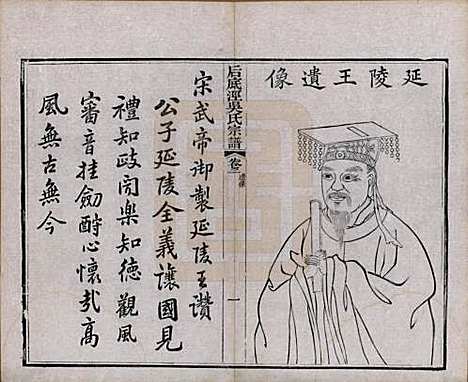 延陵王遺像
后底涇吳氏宗譜
卷二
遺像
一
宋武帝御製延陵王讚
公子延陵全義讓國見
禮知政聞樂知德觀風
審音挂劍酧心懷哉高
風無古無今